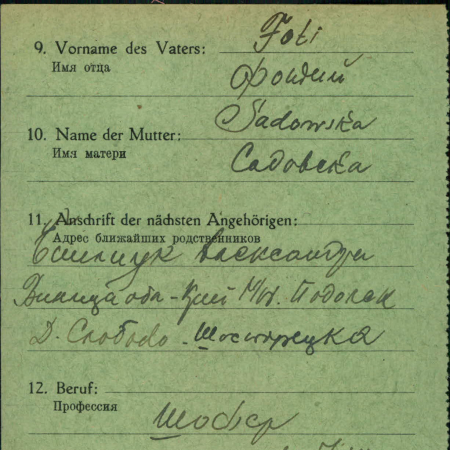 9. Vorname des Vaters: Foti
Имя отца Фотий
Sadowska
10. Name der Mutter:
Имя матери Садовска
11. Anschrift der nächsten Angehörigen:
Адрес ближайших родственников
Александра
обл - Подолск
Д. Слобода
12. Beruf:
Профессия Шофер